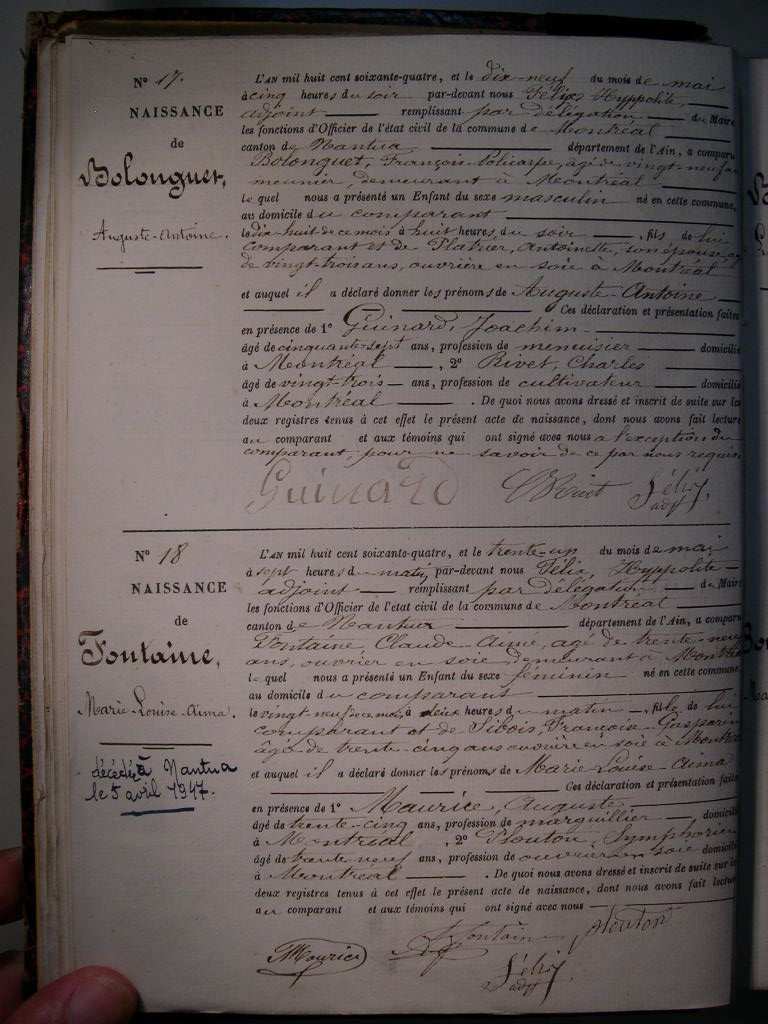 N° 17.
NAISSANCE
de
Bolonguet,
Auguste-Antoine.
L'AN mil huit cent soixante-quatre, et le dix-neuf du mois de mai
à cinq heures du soir par-devant nous Félix, Hyppolite,
adjoint remplissant par délégation du Maire
les fonctions d'Officier de l'état civil de la commune de Montréal
canton de Nantua, département de l'Ain, a comparu
Bolonguet, François-Policarpe, âgé de vingt-neuf ans
meunier, demeurant à Montréal
lequel nous a présenté un Enfant du sexe masculin né en cette commune,
au domicile du comparant
le dix-huit de ce mois à huit heures du soir, fils de lui
comparant et de Platrier, Antoinette, son épouse, 
de vingt-trois ans, ouvrière en soie à Montréal
et auquel il a déclaré donner les prénoms de Auguste-Antoine
Ces déclaration et présentation faites
en présence de 1° Guinard, Joachim
âgé de cinquante-sept ans, profession de menuisier domicilié
à Montréal, 2° Rivet, Charles
âgé de vingt-trois ans, profession de cultivateur domicilié
à Montréal. De quoi nous avons dressé et inscrit de suite sur les
deux registres tenus à cet effet le présent acte de naissance, dont nous avons fait lecture
au comparant et aux témoins qui ont signé avec nous a l'exception du
comparant, pour ne savoir de ce par nous requis
Guinard Rivet Félix adjt.
N° 18
NAISSANCE
de
Fontaine,
Marie-Louise-Aima.
décédée à Nantua
le 5 avril 1947.
L'AN mil huit cent soixante-quatre, et le trente-un du mois de mai
à sept heures du matin, par-devant nous Félix, Hyppolite
adjoint remplissant par délégation du Maire
les fonctions d'Officier de l'état civil de la commune de Montréal
canton de Nantua département de l'Ain, a comparu
Fontaine, Claude-Aimé, âgé de trente-neuf
ans, ouvrier en soie demeurant à Montréal
lequel nous a présenté un Enfant du sexe féminin né en cette commune,
au domicile du comparant
le vingt neuf de ce mois, à deux heures du matin, fille de lui
comparant et de Sibois, Françoise-Gasparine
âgée de trente-cinq ans ouvrière en soie à Montréal
et auquel il a déclaré donner les prénoms de Marie-Louise-Aima
Ces déclaration et présentation faites
en présence de 1° Maurice, Auguste
âgé de trente-cinq ans, profession de marguillier domicilié
à Montréal, 2° Plouton, Symphorien
âgé de trente neuf ans, profession de ouvrier en soie domicilié
à Montréal. De quoi nous avons dressé et inscrit de suite sur les
deux registres tenus à cet effet le présent acte de naissance, dont nous avons fait lecture
au comparant et aux témoins qui ont signé avec nous
Maurice Fontaine Plouton
Félix adjt